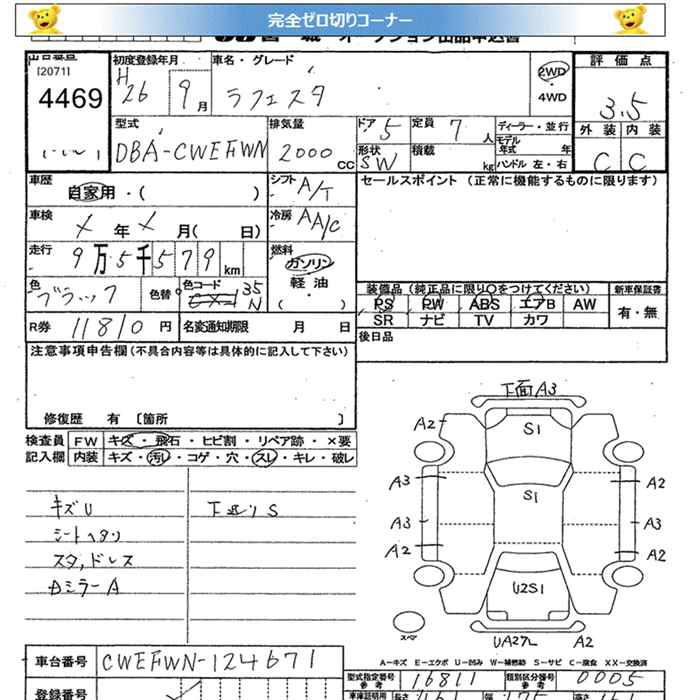 完全ゼロ切りコーナー
出品番号 [2071] 4469
初度登録年月 H26 9月
車名・グレード ラフェスタ
2WD ・ 4WD
評価点 3.5
外装 内装
C C
型式 DBA-CWEFWN
排気量 2000 CC
ドア 5 定員 7 人
形状 SW 積載 kg
ディーラー・並行
モデル年式 年
ハンドル 左・右
車歴 自家用・( )
シフト A/T
セールスポイント (正常に機能するものに限ります)
車検 年 月( 日)
冷房 AA/C
走行 9万5千579 km
燃料 ガソリン 軽油 ・ ( )
色 ブラック 色替
色コード 35N
R券 11810 円
名変通知期限 月 日
装備品 (純正品に限り○をつけてください)
新車保証書
PS PW ABS エアB AW
SR ナビ TV カワ
有・無
後日品
注意事項申告欄 (不具合内容等は具体的に記入して下さい)
修復歴 有 〔箇所 〕
検査員記入欄
FW キズ・飛石・ヒビ割・リペア跡・×要
内装 キズ・汚れ・コゲ・穴・スレ・キレ・破レ
キズU
シートヘタリ
スタッドレス
下廻りS
下面A3
A2
S1
A3 S1 A2
A3 A3
A2 A2
U2S1
スペア
UA27L A2
A-キズ E-エクボ U-凹み W-補修跡 S-サビ C-腐食 XX-交換済
車台番号 CWEFWN-124671
型式指定番号 参考 16811
類別区分番号 参考 0005
登録番号